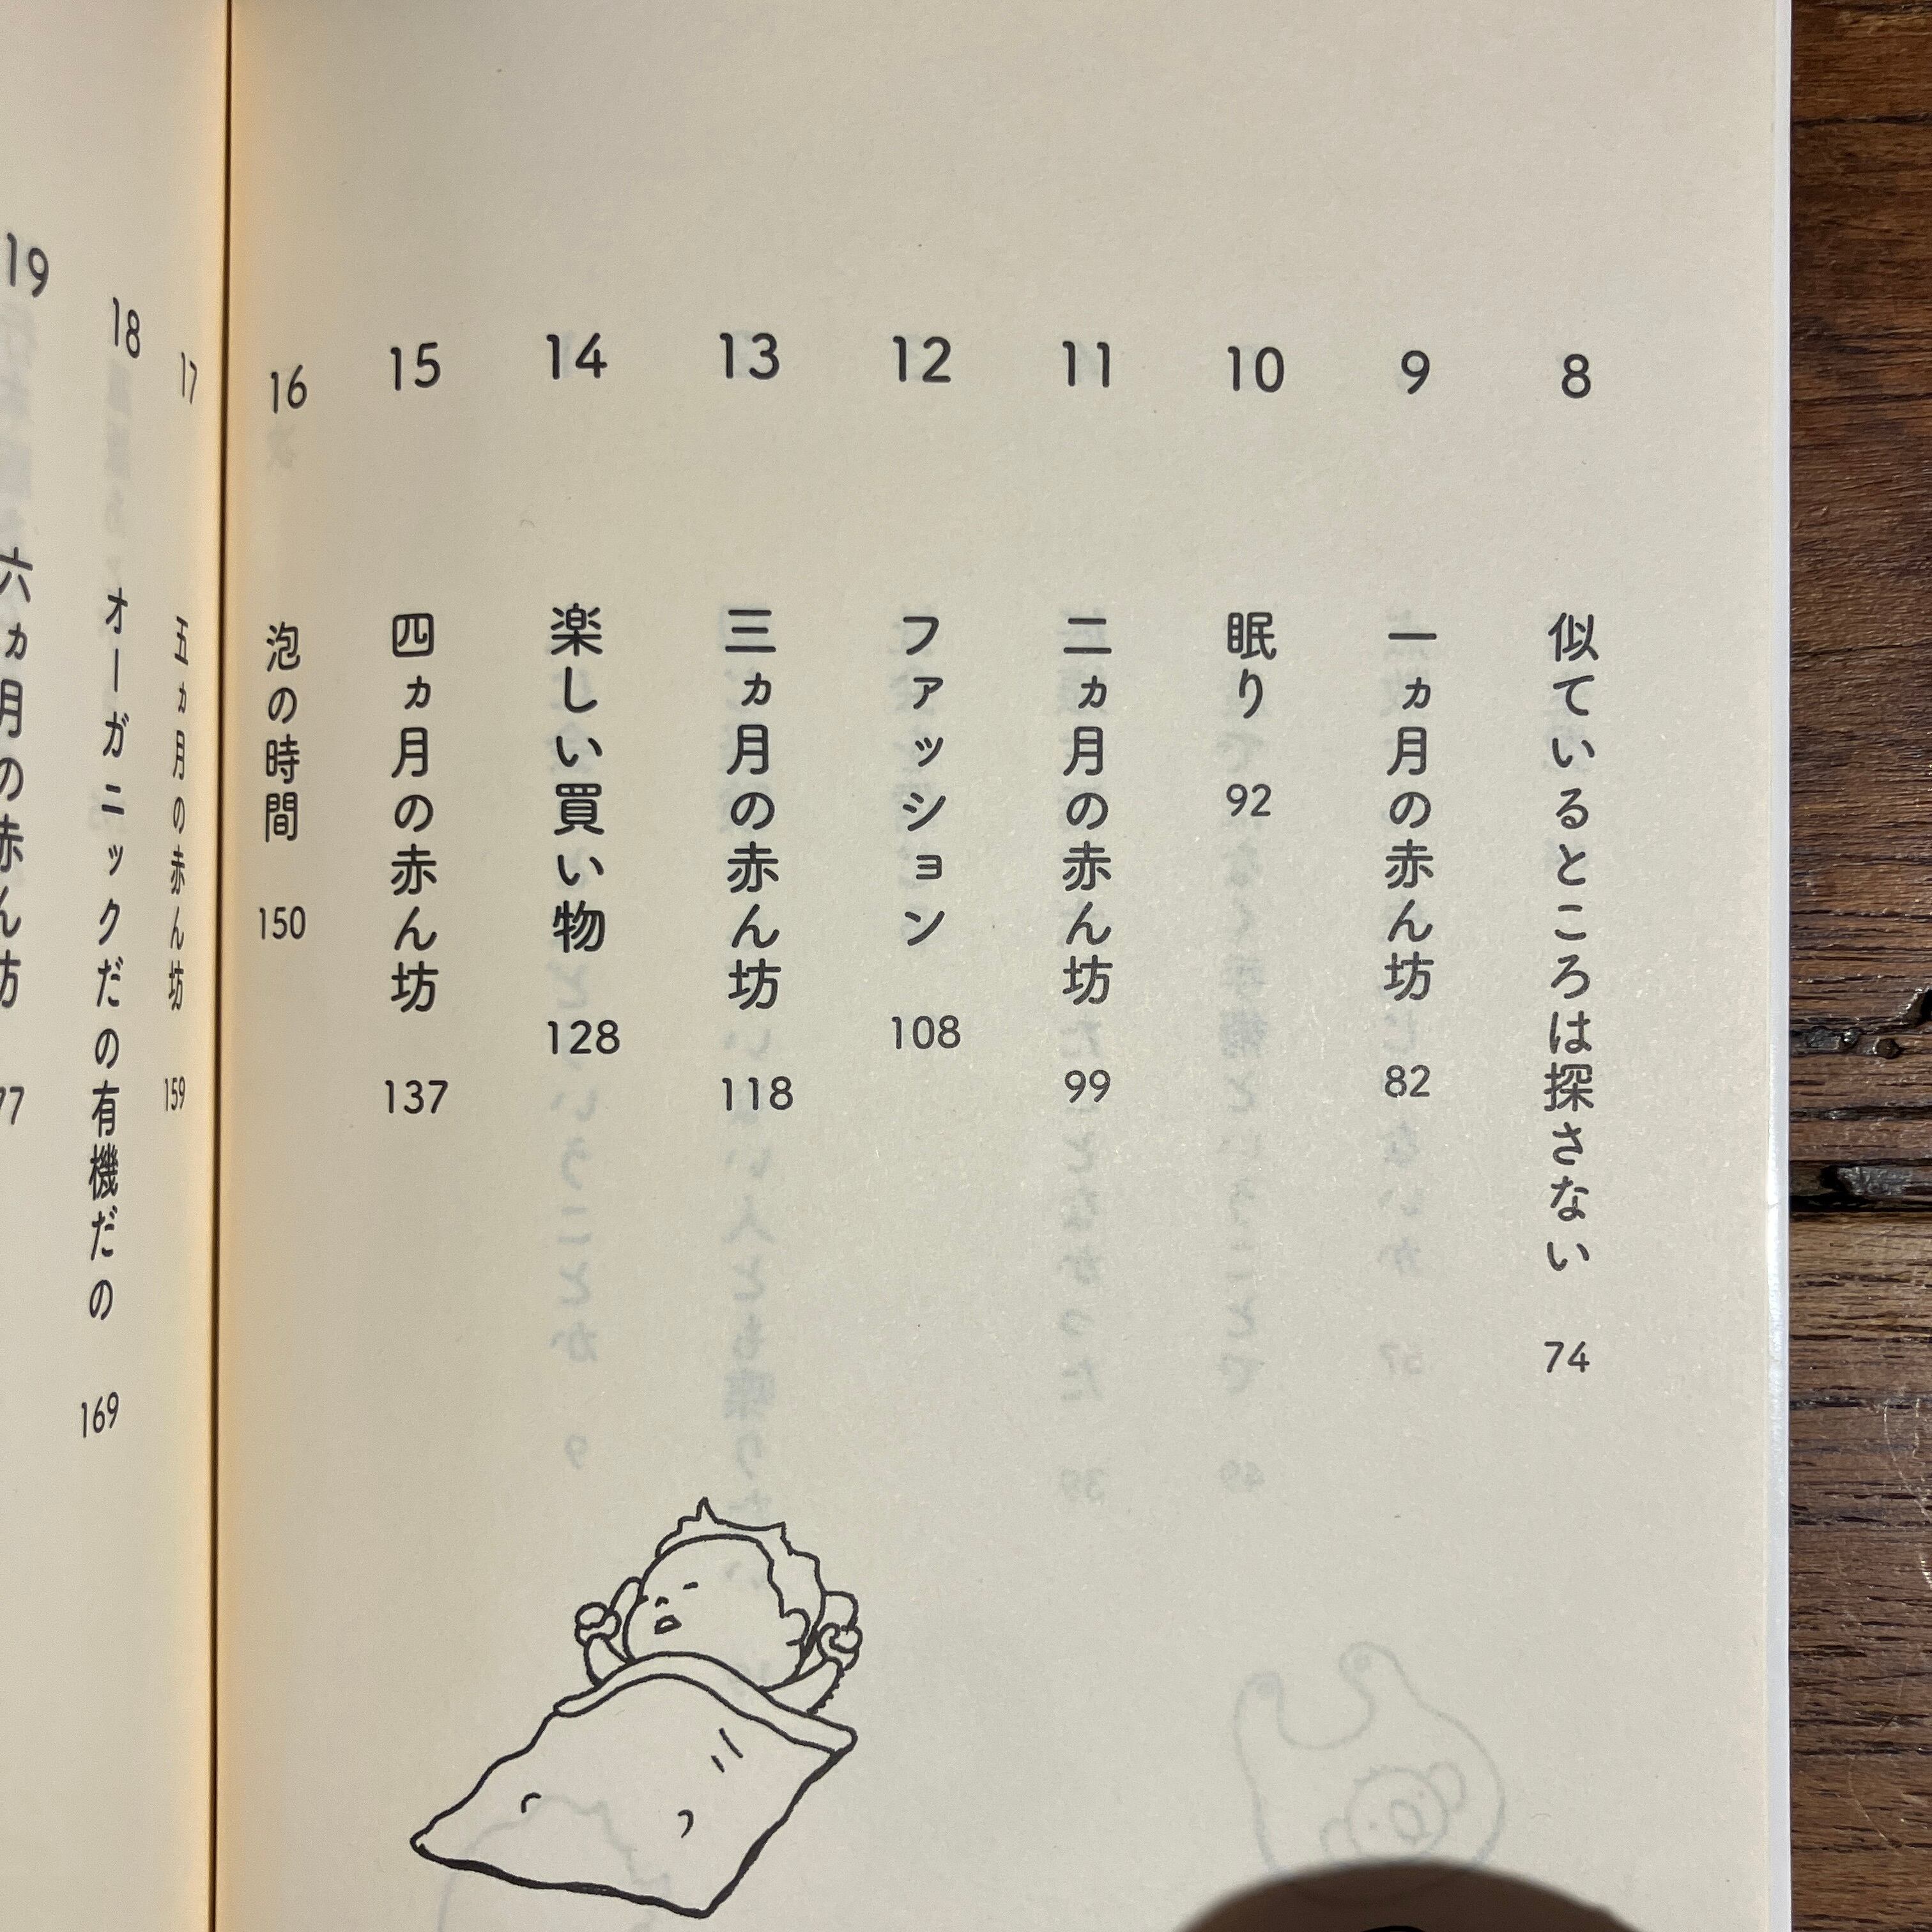 8 似ているところは探さない 74
9 一ヵ月の赤ん坊 82
10 眠り 92
11 二ヵ月の赤ん坊 99
12 ファッション 108
13 三ヵ月の赤ん坊 118
14 楽しい買い物 128
15 四ヵ月の赤ん坊 137
16 泡の時間 150
17 五ヵ月の赤ん坊 159
18 オーガニックだの有機だの 169
19 六ヵ月の赤ん坊